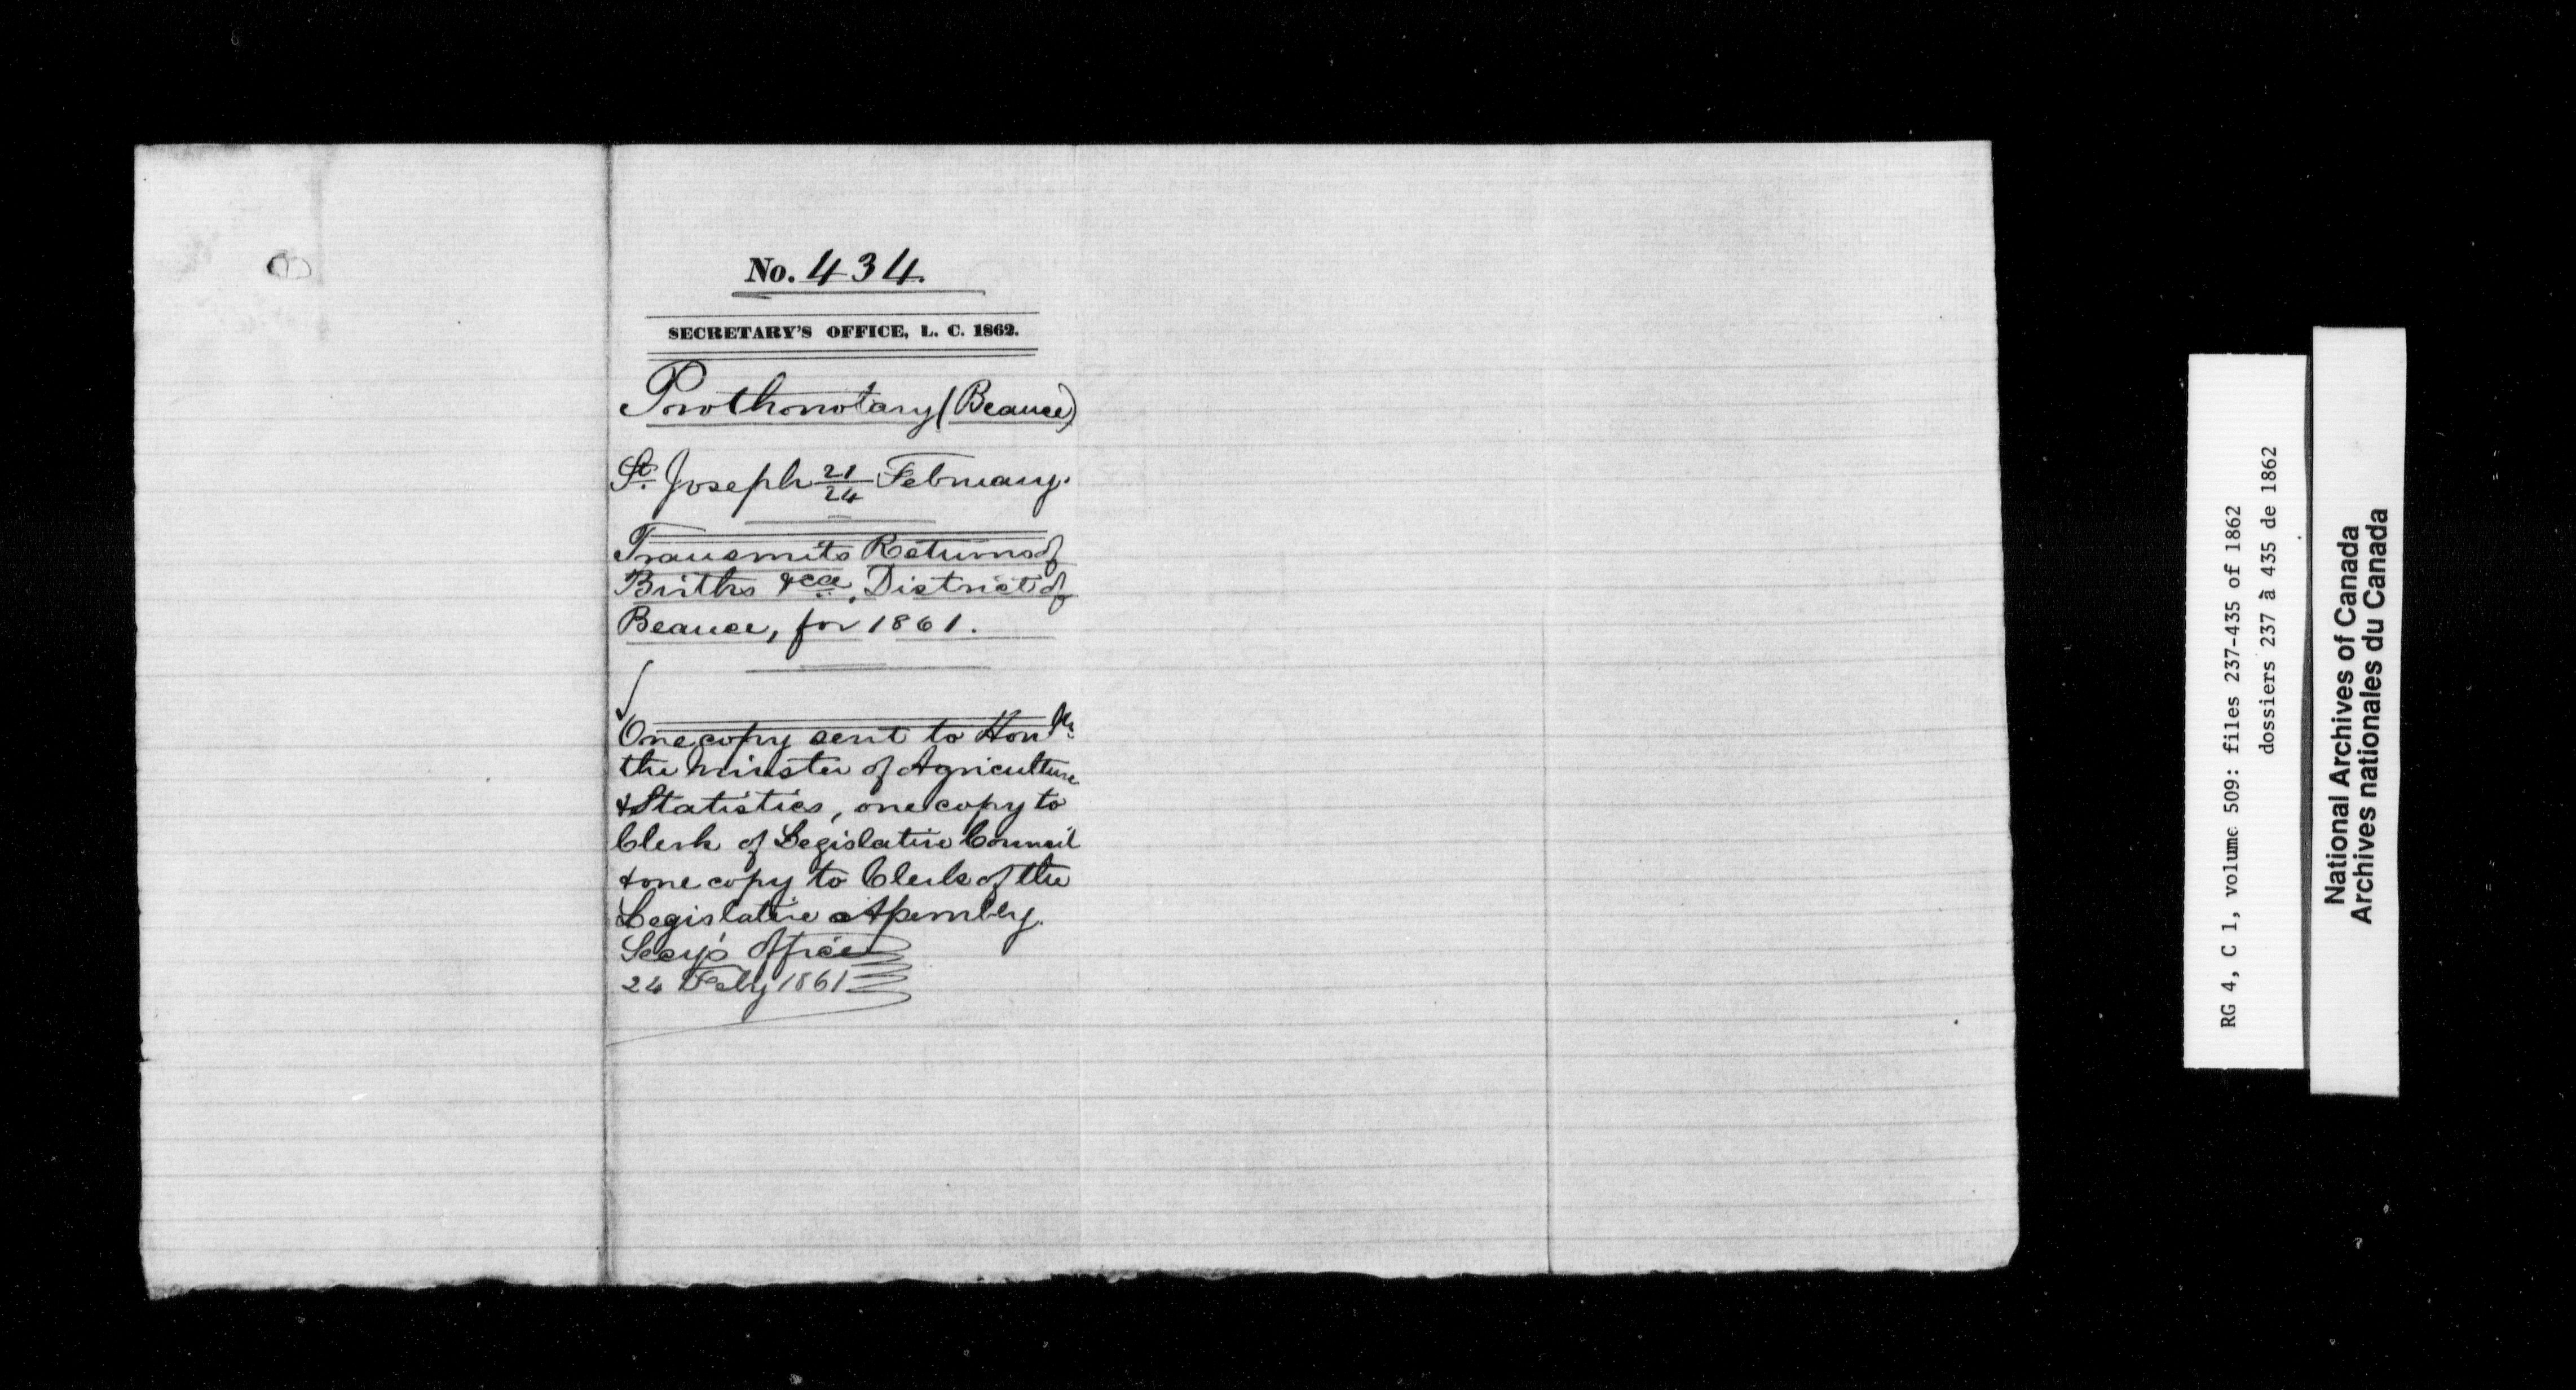 No. 434.
SECRETARY'S OFFICE, L. C. 1862.
Prothonotary (Beauce)
St. Joseph 21/24 February.
Transmits Returns of
Births &ca, District of
Beauce, for 1861.
One copy sent to Honble
the Minister of Agriculture
& Statistics, one copy to
Clerk of Legislative Council
& one copy to Clerk of the
Legislative Assembly.
Secy's Office
24 Feby 1861
RG 4, C 1, volume 509: files 237-435 of 1862
dossiers 237 à 435 de 1862
National Archives of Canada
Archives nationales du Canada